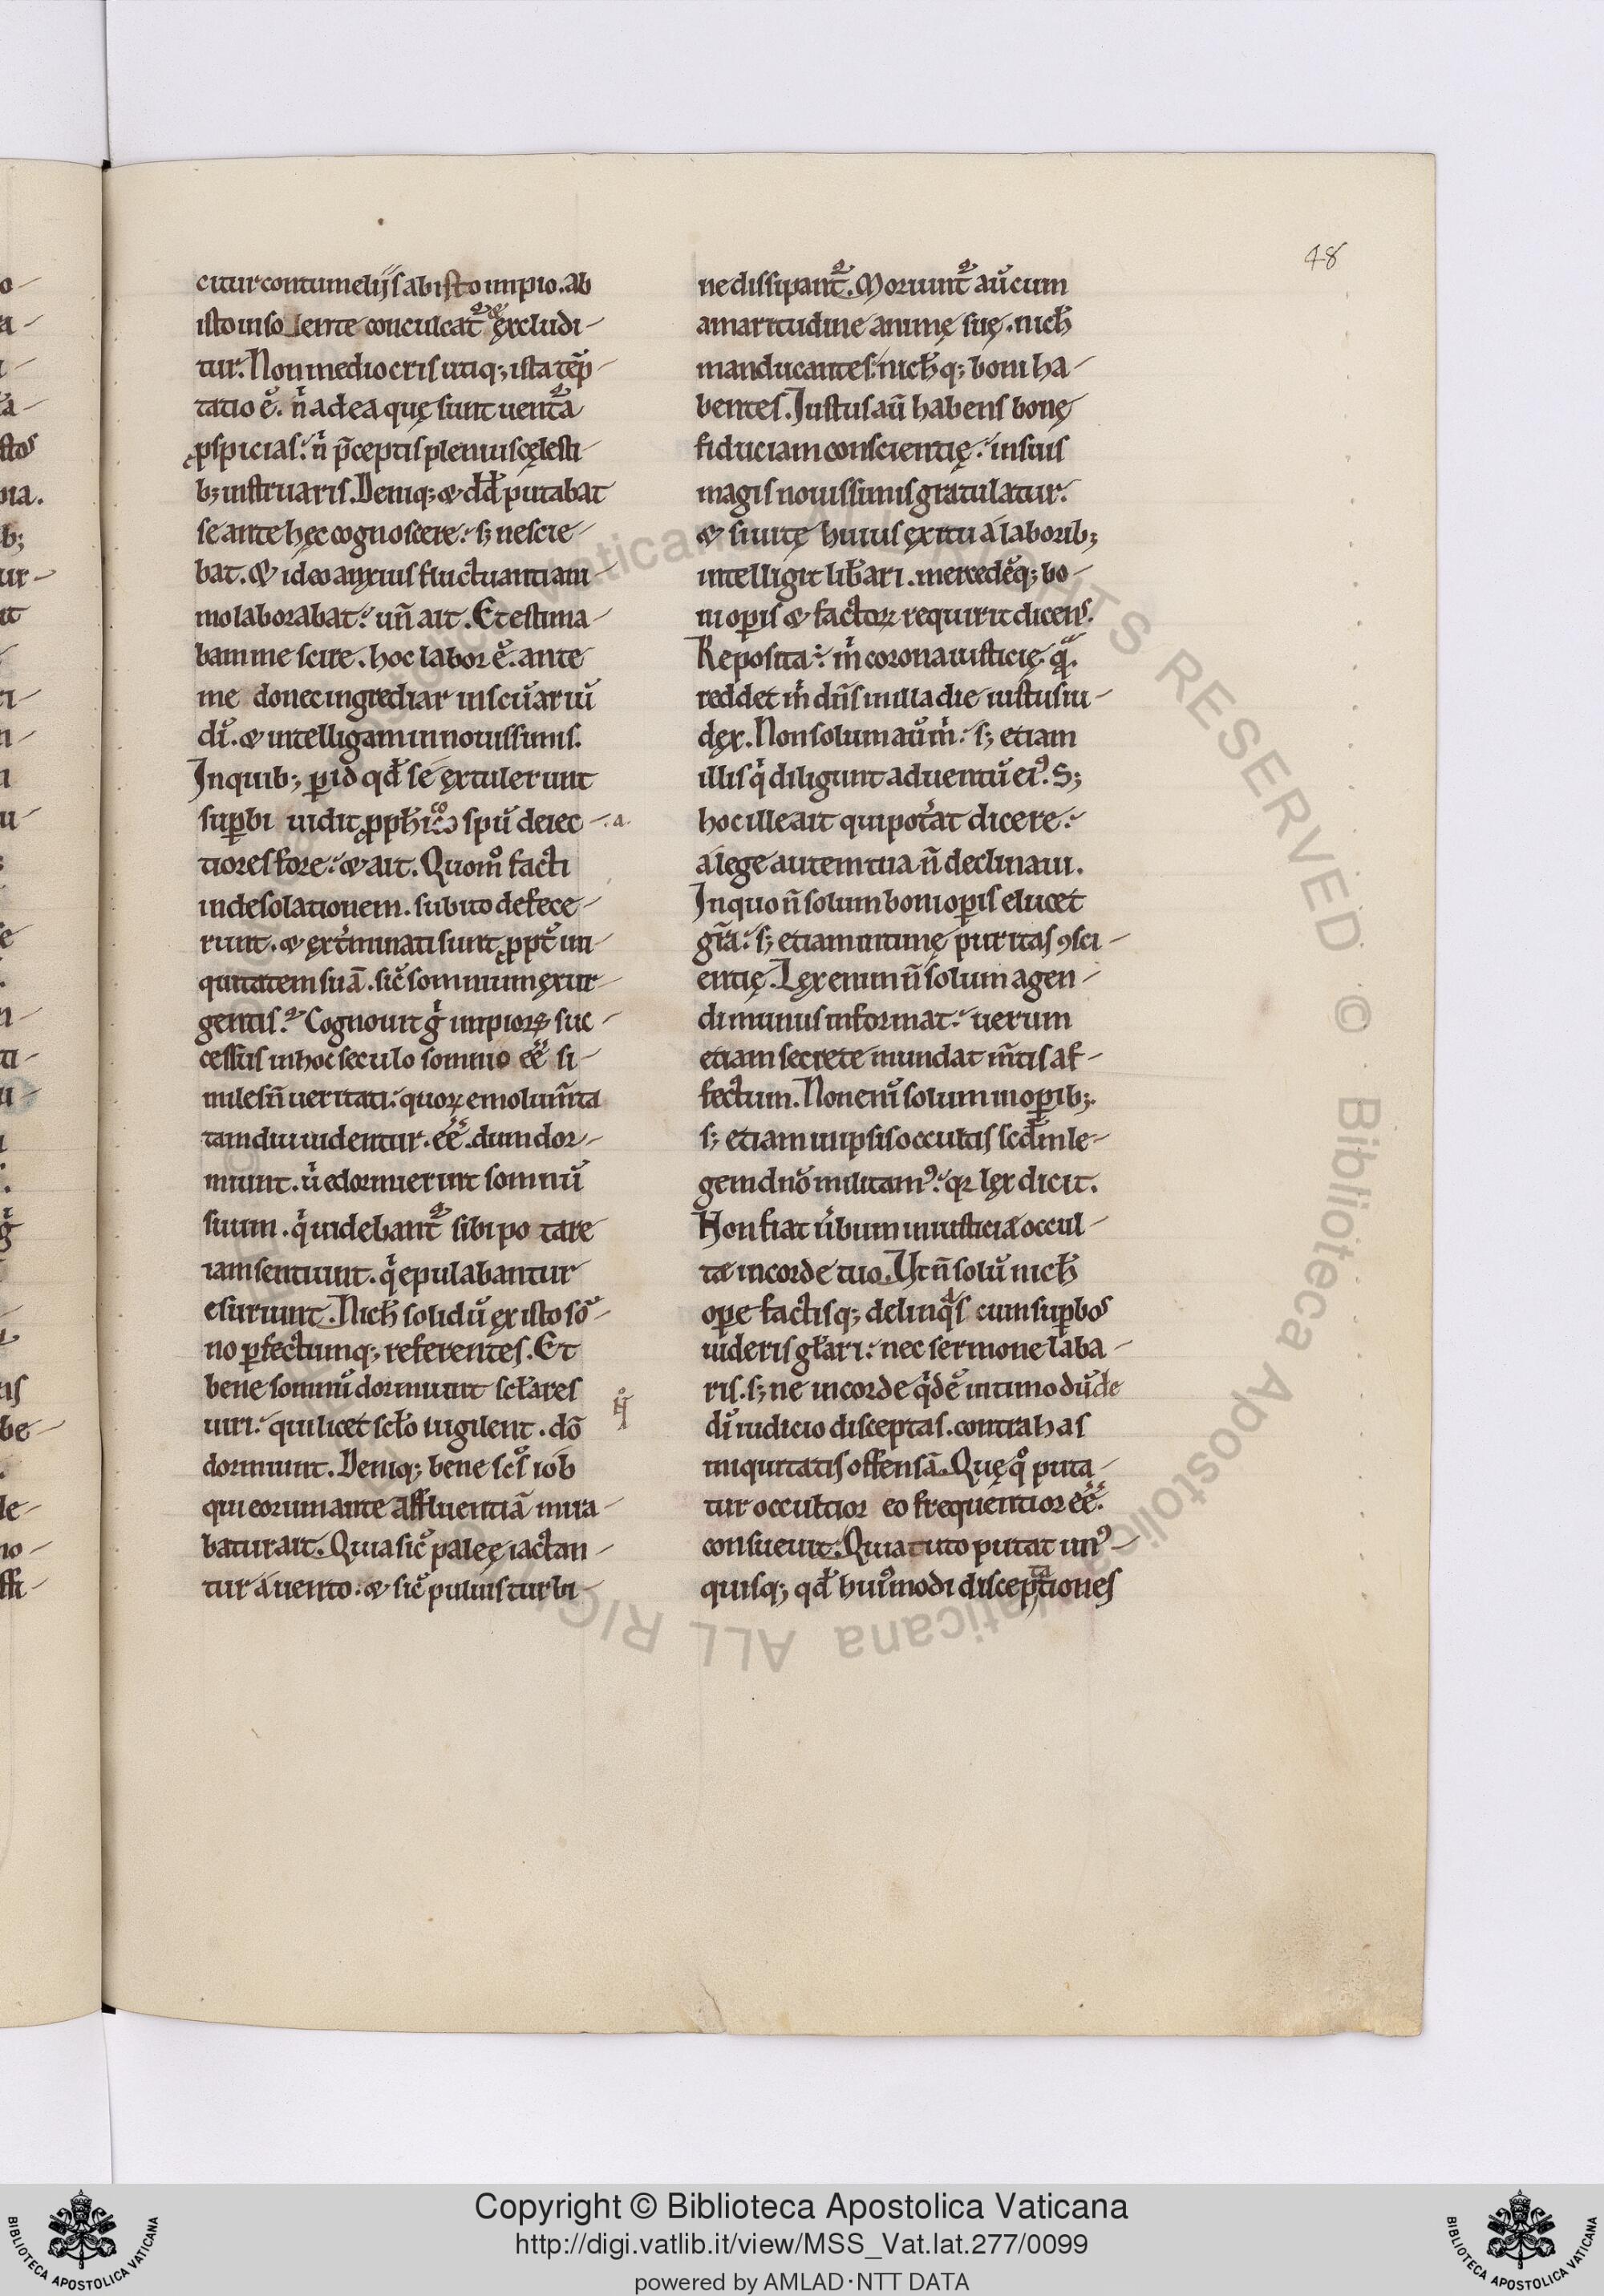 48
citur contumeliis ab isto impio. ab
isto insolente conculcat᷑ & excludi-
tur. Non mediocris utiq; ista tēp-
tatio ē. n̄ ad ea quę sunt uent᷑a
ꝓspicias: n̄ p̄ceptis plenius cęlesti-
b; instruaris. Deniq; & dd̄ putabat
se ante hęc cognoscere: s; nescie-
bat. & ideo anxius fluctuanti ani-
mo laborabat: un̄ ait. Et estima-
bam me scire. hoc labor ē. ante
me donec ingrediar in sc̄uariū
dī. & intelligam in nouissimis.
In quib; ꝑ id qd̄ se extulerunt
suꝑbi uidit ꝓph̄ico spū deiec-
tiores fore: & ait. Quom̊ facti
in desolationem. subito defece-
runt. & ext̄minati sunt ꝓpt̄ ini-
quitatem suā. sic̄ somnium exur-
gentis. Cognouit g̊ impioꝝ suc-
cessus in hoc seculo somnio eē si-
miles n̄ ueritati: quoꝝ emolum̄ta
tam diu uidentur eē. dum dor-
miunt. u̇ edormierint somnū
suum. qi uidebant᷑ sibi po tare
iam sentiunt. qi epulabantur
esuriunt. Nich̄ solidū ex isto sō-
no ꝑfectumq; referentes. Et
bene somnū dormiunt scl̄ares
uiri: qui licet scl̄o uigilent. dō
dormiunt. Deniq; bene sc̄s iob
qui eorum ante affluentiā mira-
batur ait. Quia sic̄ paleę iactan-
tur a uento. & sic̄ puluis turbi-
ne dissipant᷑. Moriunt᷑ aū cum
amaritudine animę suę. nich̄
manducantes: nich̄q; boni ha-
bentes. Iustus aū habens bonę
fiduciam conscientię: in suis
magis nouissimis gratulatur.
& si uitę huius exitu a laborib;
intelligit lib̄ari. mercedēq; bo-
ni oꝑis & factoꝝ requirit dicens.
Reposita: m̄ corona iusticię. q̄.
reddet m̄ dn̄s in illa die iustus iu-
dex. Non solum aū m̄: s; etiam
illis qi diligunt aduentū eiꝰ. S;
hoc ille ait qui pot̄at dicere:
a lege autem tua n̄ declinaui.
In quo n̄ solum boni oꝑis elucet
gr̄a: s; etiam intimę puritas ꝯsci-
entię. Lex enim n̄ solum agen-
di munus informat: uerum
etiam secrete mundat m̄tis af-
fectum. Non enī solum in oꝑib;.
s; etiam in ipsis occultis scd̄m le-
gem dn̄o militamꝰ: qꝛ lex dicit.
Non fiat u̇bum iniusticia occul-
tæ in corde tuo. Ut n̄ solū nich̄
oꝑe factisq; delinqis cum suꝑbos
uideris gl̄ari: nec sermone laba-
ris. s; ne in corde qidē intimo dū de
dī iudicio disceptas. contrahas
iniquitatis offensā. Quę qo puta-
tur occultior eo frequentior eē.
consueuit. Quia tuto putat unꝰ-
quisq; qd̄ huiꝰmodi disceptationes
Copyright © Biblioteca Apostolica Vaticana
http://digi.vatlib.it/view/MSS_Vat.lat.277/0099
powered by AMLAD·NTT DATA
BIBLIOTECA APOSTOLICA VATICANA
BIBLIOTECA APOSTOLICA VATICANA